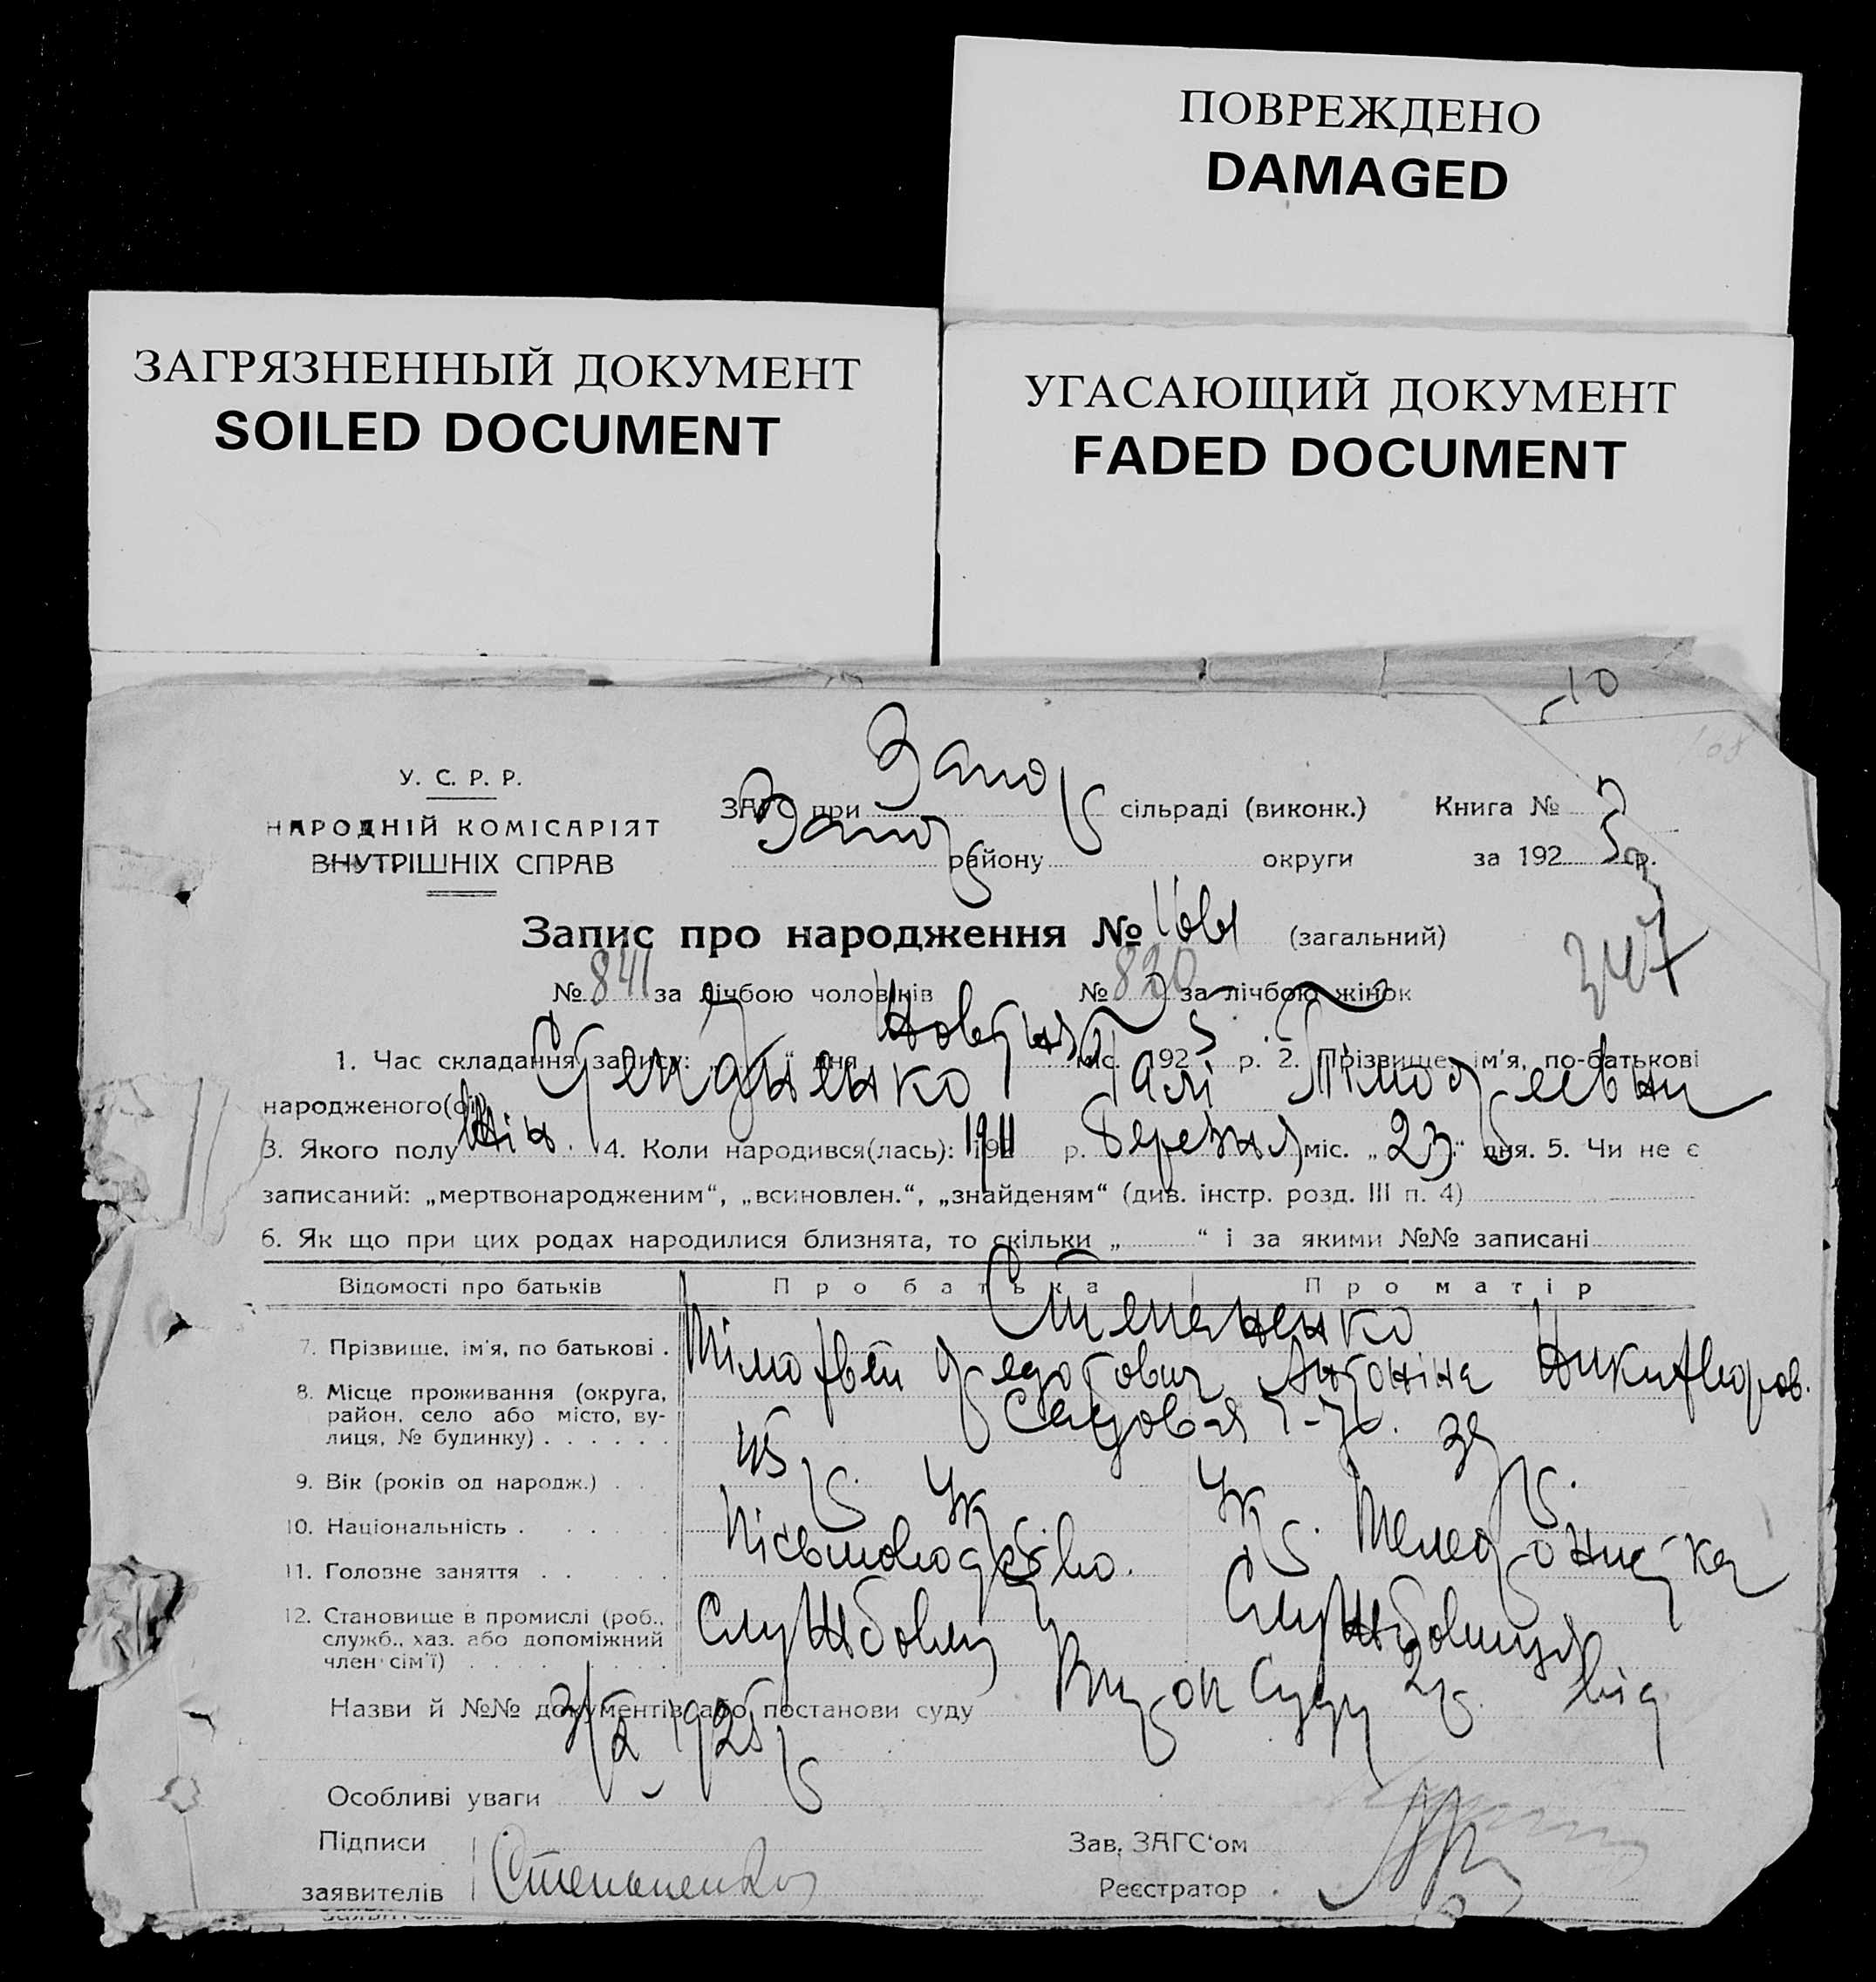 ПОВРЕЖДЕНО
DAMAGED
ЗАГРЯЗНЕННЫЙ ДОКУМЕНТ
SOILED DOCUMENT
УГАСАЮЩИЙ ДОКУМЕНТ
FADED DOCUMENT
10
У. С. Р. Р.
НАРОДНІЙ КОМІСАРІЯТ
ВНУТРІШНІХ СПРАВ
ЗАГС при Запор сільраді (виконк.) Книга №
Запор району округи за 1925 р.
Запис про народження № (загальний)
347
№ 841 за лічбою чоловіків № 820 за лічбою жінок
1. Час складання запису: „ “ дня Новтня міс. 1925 р. 2. Прізвище, ім'я, по-батькові
народженого(ої) Степаненко Галі Тімофеевни
3. Якого полу жін. 4. Коли народився(лась): 1911 р. Березня міс. „23“ дня. 5. Чи не є
записаний: „мертвонародженим“, „всиновлен.“, „знайденям“ (див. інстр. розд. III п. 4)
6. Як що при цих родах народилися близнята, то скільки „ “ і за якими №№ записані
Відомості про батьків Про батька Про матір
Степаненко
7. Прізвище, ім'я, по батькові . Тімофей Федотович Антоніна Никифоров.
8. Місце проживання (округа,
район, село або місто, ву-
лиця, № будинку) . . . . . . Садовая
9. Вік (років од народж.) . . 45 р. 39 р.
10. Національність . . . . . Укр. Укр.
11. Головне заняття . . . . . Пісьмоводство. Телефонистка
12. Становище в промислі (роб.,
служб., хаз. або допоміжний
член сім'ї) . . . . . . . . Службовец Службовиця
Назви й №№ документів або постанови суду Суду 2 р. від
3/X 1925 р
Особливі уваги
Підписи Зав. ЗАГС'ом
заявителів Степаненко Реєстратор .